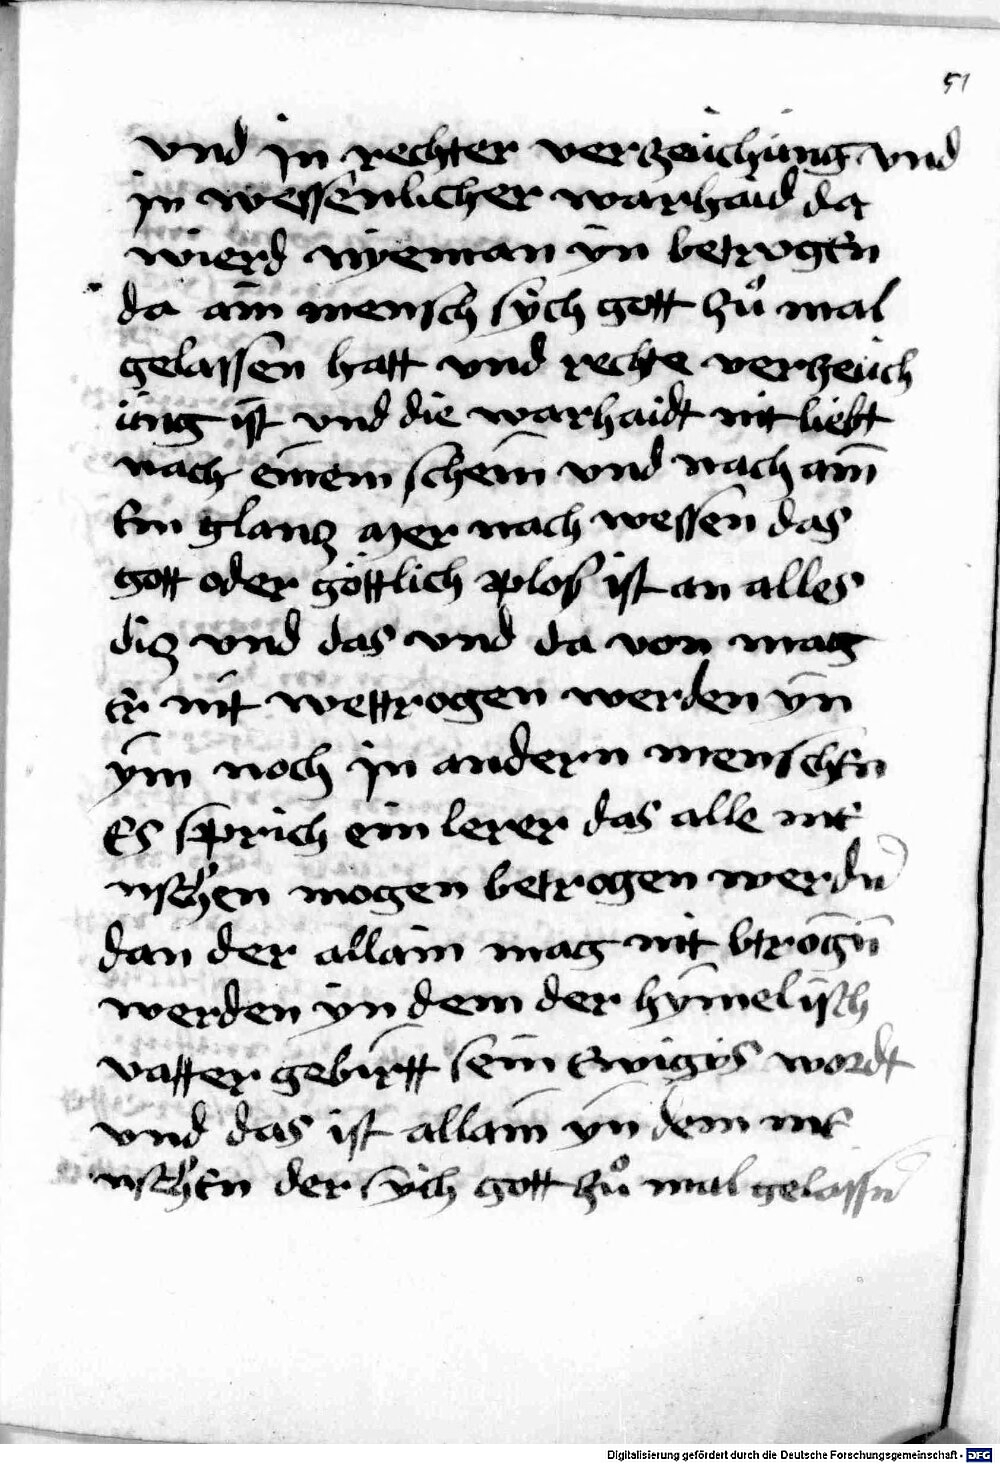 51
vnd jn rechter verzeiichüng vnd
jn wessenlicher warhaid da
wierd nyeman yn betrogen
da ain mensch sÿch gott zuͦ mal
gelassen hatt vnd rechte verzeüch
üng ist vnd die warhaidt nit liebt
nach einem schein vnd nach aim
Ein glantz aber nach wessen das
gott oder göttlich plos ist an alles
diz vnd das vnd da von mag
Er nit wettrogen werden yn
ÿm noch jn andern menschen
Es sprich ein lerer das alle me
nschen mogen betrogen werdn̄
dan der allain mag nit btrogn̄
werden yn dem der hÿmelisch
vatter gebirtt sein Ewigs wordt
vnd das ist allain yn dem me
nschen der sÿch gott zuͦ mal gelassn̄
Digitalisierung gefördert durch die Deutsche Forschungsgemeinschaft - DFG